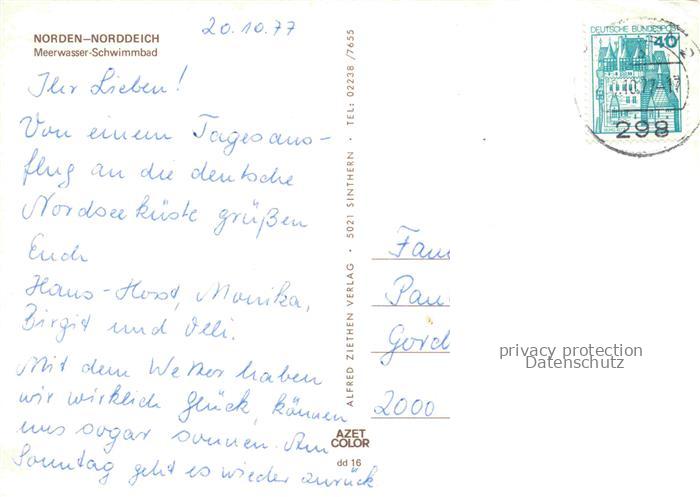 NORDEN–NORDDEICH
Meerwasser-Schwimmbad
20.10.77
Ihr Lieben!
Von einem Tagesaus-
flug an die deutsche
Nordseeküste grüßen
Euch
Hans-Horst, Monika,
Birgit und Olli.
Mit dem Wetter haben
wir wirklich Glück, können
uns sogar sonnen. Am
Sonntag geht es wieder zurück
ALFRED ZIETHEN VERLAG · 5021 SINTHERN · TEL: 02238/7655
AZET
COLOR
dd 16
DEUTSCHE BUNDESPOST
40
.10.77-17
298
Fam
Pau
Gord
2000
privacy protection
Datenschutz